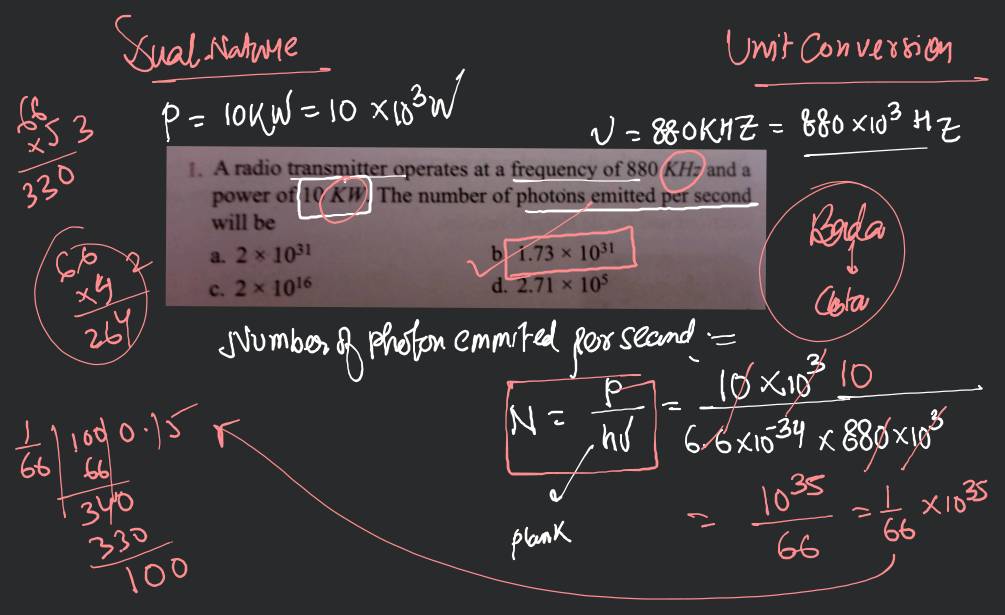 Dual Nature
Unit Conversion
P = 10KW = 10 ×10³ W
ν = 880KHZ = 880 ×10³ HZ
66
×5 3
330
1. A radio transmitter operates at a frequency of 880 KHz and a
power of 10 KW. The number of photons emitted per second
will be
a. 2 × 10³¹
b. 1.73 × 10³¹
c. 2 × 10¹⁶
d. 2.71 × 10⁵
66 2
×4
264
Number of photon emmited per second :=
N = P/hν = 10 ×10³ 10 / 6.6 ×10⁻³⁴ × 880 ×10³
plank
= 10³⁵/66 = 1/66 ×10³⁵
1/66
100 0.15
66
340
330
100